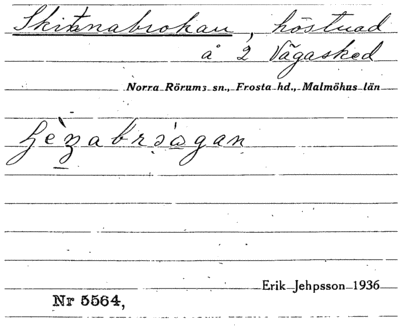 Skitnabrokau, höstuad
å 2 Vägasked
Norra Rörums sn., Frosta hd., Malmöhus län
Erik Jehpsson 1936
Nr 5564,